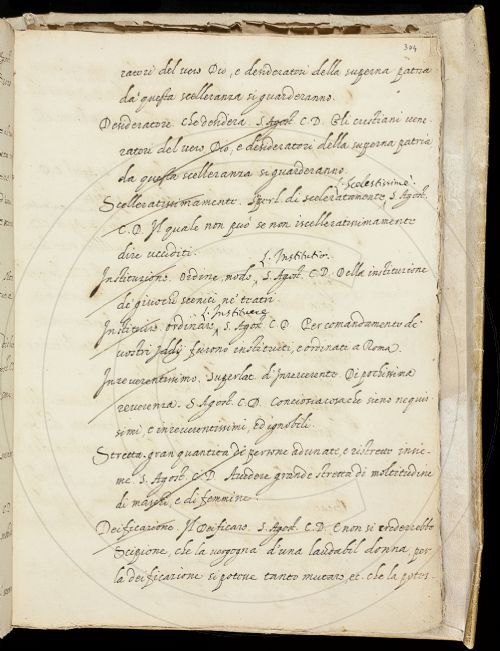 304
ratori del vero Dio, e desideratori della superna patria
da questa scelleranza si guarderanno.
Desideratore. Che desidera. S. Agost. C. D. Gli cristiani vene-
ratori del vero Dio, e desideratori della superna patria
da questa scelleranza si guarderanno.
L. Scelestissimè.
Scelleratissimamente. Sperl. di sceleratamente. S. Agost.
C. D. Il quale non può se non iscelleratissimamente
dire ucciditi.
L. Institutio.
Instituzione. Ordine, modo. S. Agost. C. D. Della instituzione
de' giuochi scenici ne' teatri.
L. Instituere
Instituire ordinare. S. Agost. C. D. Per comandamento de'
vostri Iddij furono instituiti, e ordinati a Roma.
Inreverentissimo. Superlat. d'Inreverente. Di pochissima
reverenza. S. Agost. C. D. Conciosiacosache sieno nequis-
simi, e inreverentissimi, ed ignobili.
Stretta, gran quantità di persone adunate, e ristrette insie-
me. S. Agost. C. D. Avedere grande stretta di moltitudine
di maschi, e di femmine.
Deificazione. Il Deificare. S. Agost. C. D. E non si crederrebbe
Scipione, che la vergogna d'una laudabil donna, per
la deificazione si potesse tanto mutare, et che la potes-